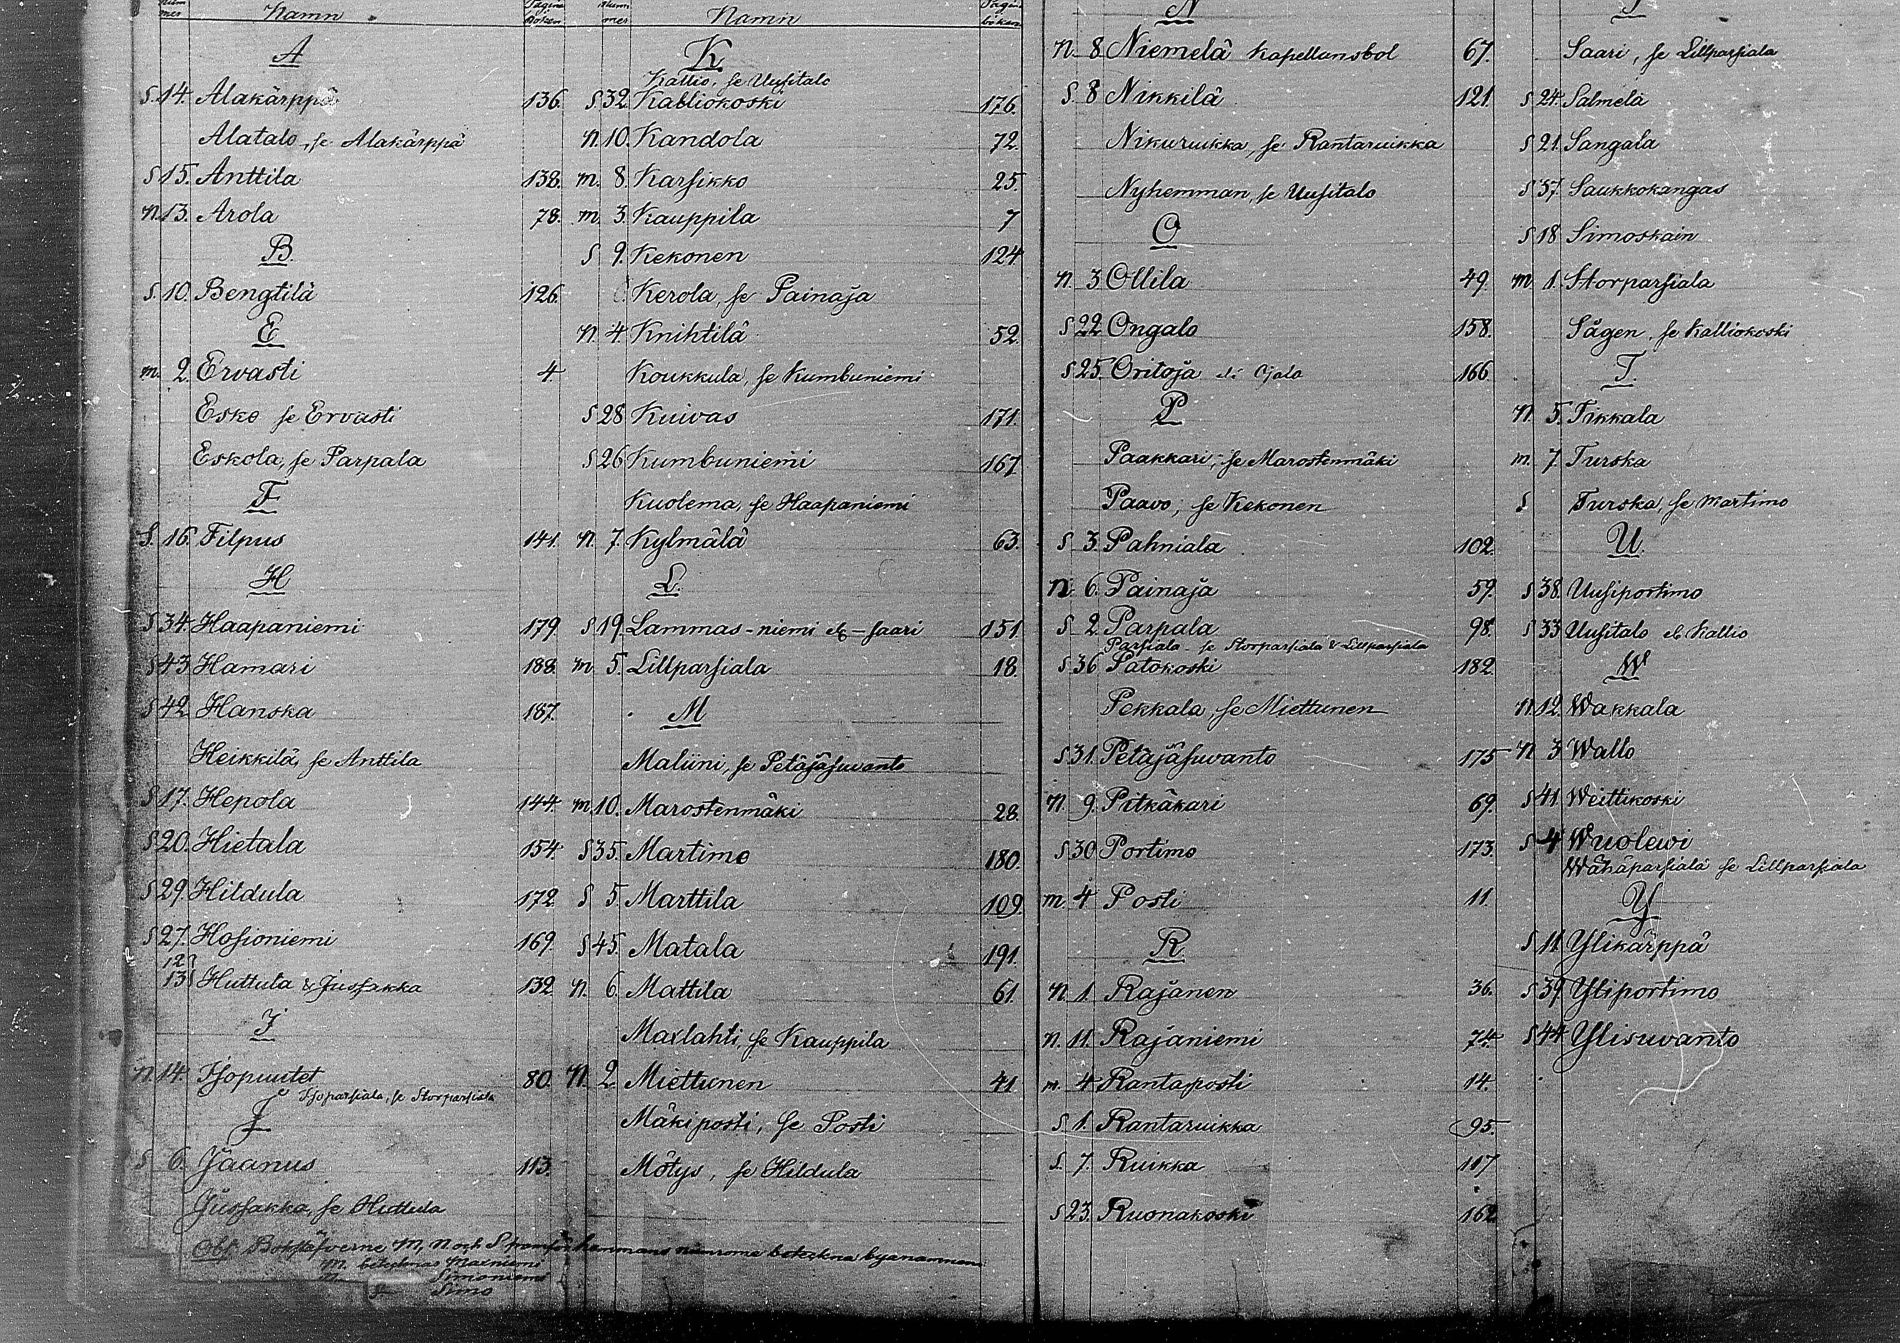 Nummer Namn Pagina i boken
A
S. 14. Alakärppä 136.
Alatalo, se Alakärppä
S 15. Anttila 138.
N. 13. Arola 78.
B.
S. 10. Bengtilä 126.
E
M. 2. Ervasti 4.
Esko se Ervasti
Eskola, se Parpala
F
S. 16. Filpus 141.
H
S 34. Haapaniemi 179.
S 43 Hamari 188.
S 42. Hanska 187.
Heikkilä, se Anttila
S 17. Hepola 144.
S 20. Hietala 154.
S 29. Hildula 172
S 27. Hosioniemi 169.
12
13 Huttula & Jussakka 132
I
N. 14. Isopuutet 80.
Isoparsiala, se Storparsiala
J
S 6. Jaanus 113.
Jussakka, se Huttula
Obs. Bokstäfverne M, N och S framför hemmans numrorna beteckna byanamnen
M. betecknas Maxniemi
N. Simoniemi
S Simo
Nummer Namn Pagina i boken
K
Kallio, se Uusitalo
S 32 Kalliokoski 176.
N. 10. Kandola 72
M. 8. Karsikko 25.
M. 3. Kauppila 7
S 9. Kekonen 124
Kerola, se Painaja
N 4. Knihtilä 52.
Koukkula, se Kumbuniemi
S 28 Kuivas 171.
S 26 Kumbuniemi 167
Kuolema, se Haapaniemi
N. 7. Kylmälä 63.
L.
S 19. Lammas-niemi el. -saari 151
M 5. Lillparsiala 18.
M
Maliini, se Petäjäsuvanto
M 10. Marostenmäki 28.
S 35. Martimo 180.
S 5. Marttila 109.
S 45. Matala 191.
N. 6. Mattila 61.
Maxlahti, se Kauppila
N. 2. Miettunen 41
Mäkiposti, se Posti
Mötys, se Hildula
N
N. 8. Niemelä Kapellansbol 67.
S. 8 Nikkilä 121.
Nikuruikka, se Rantaruikka
Nyhemman, se Uusitalo
O
N. 3 Ollila 49.
S 22. Ongalo 158.
S 25. Oritoja el. Ojala 166.
P
Paakkari, se Marostenmäki
Paavo, se Kekonen
S 3. Pahniala 102.
N 6. Painaja 59.
S 2. Parpala 98.
Parsiala se Storparsiala & Lillparsiala
S. 36. Patokoski 182.
Pekkala, se Miettunen
S 31. Petäjäsuvanto 175
N 9. Pitkäkari 69.
S. 30 Portimo 173.
M. 4 Posti 11.
R
N. 1. Rajanen 36.
N. 11. Rajaniemi 74.
M. 4. Rantaposti 14.
S. 1. Rantaruikka 95.
S. 7. Ruikka 117
S 23. Ruonakoski 162
Saari, se Lillparsiala
S 24. Salmela
S 21. Sangala
S 37. Saukkokangas
S 18. Simoskain
M 1. Storparsiala
Sågen, se Kalliokoski
T.
N. 5. Tikkala
M. 7 Turska
S Turska, se Martimo
U.
S 38. Uusiportimo
S 33 Uusitalo el. Kallio
W
N 12. Wakkala
N 3 Wallo
S 41. Weittikoski
S 4 Wuolewi
Wähäparsiala se Lillparsiala
Y
S 11 Ylikärppä
S 39 Yliportimo
S 44 Ylisuvanto